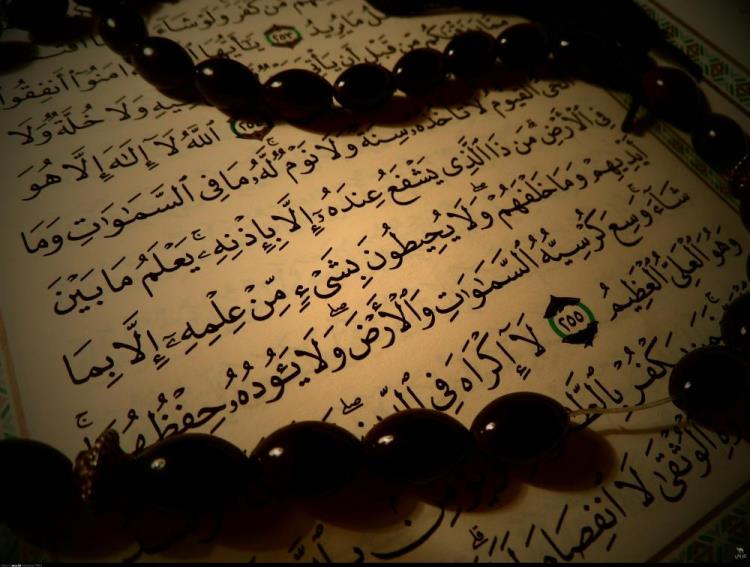 مَّن كَفَرَ وَلَوْ شَآءَ
مَا يُرِيدُ ٢٥٣ يَٰٓأَيُّهَا ءَامَنُوٓا۟ أَنفِقُوا۟
مِّن قَبْلِ أَن يَأْتِىَ فِيهِ وَلَا خُلَّةٌ وَلَا
٢٥٤ ٱللَّهُ لَآ إِلَٰهَ إِلَّا هُوَ
ٱلْقَيُّومُ لَا تَأْخُذُهُۥ سِنَةٌ وَلَا نَوْمٌ ۚ لَّهُۥ مَا فِى ٱلسَّمَٰوَٰتِ وَمَا
فِى ٱلْأَرْضِ ۗ مَن ذَا ٱلَّذِى يَشْفَعُ عِندَهُۥٓ إِلَّا بِإِذْنِهِۦ ۚ يَعْلَمُ مَا بَيْنَ
أَيْدِيهِمْ وَمَا خَلْفَهُمْ ۖ وَلَا يُحِيطُونَ بِشَىْءٍ مِّنْ عِلْمِهِۦٓ إِلَّا بِمَا
شَآءَ ۚ وَسِعَ كُرْسِيُّهُ ٱلسَّمَٰوَٰتِ وَٱلْأَرْضَ ۖ وَلَا يَـُٔودُهُۥ حِفْظُهُمَا ۚ
وَهُوَ ٱلْعَلِىُّ ٱلْعَظِيمُ ٢٥٥ لَآ إِكْرَاهَ فِى ٱلدِّينِ ۖ
فَمَن يَكْفُرْ
ٱلْوُثْقَىٰ لَا ٱنفِصَامَ لَهَا ۗ